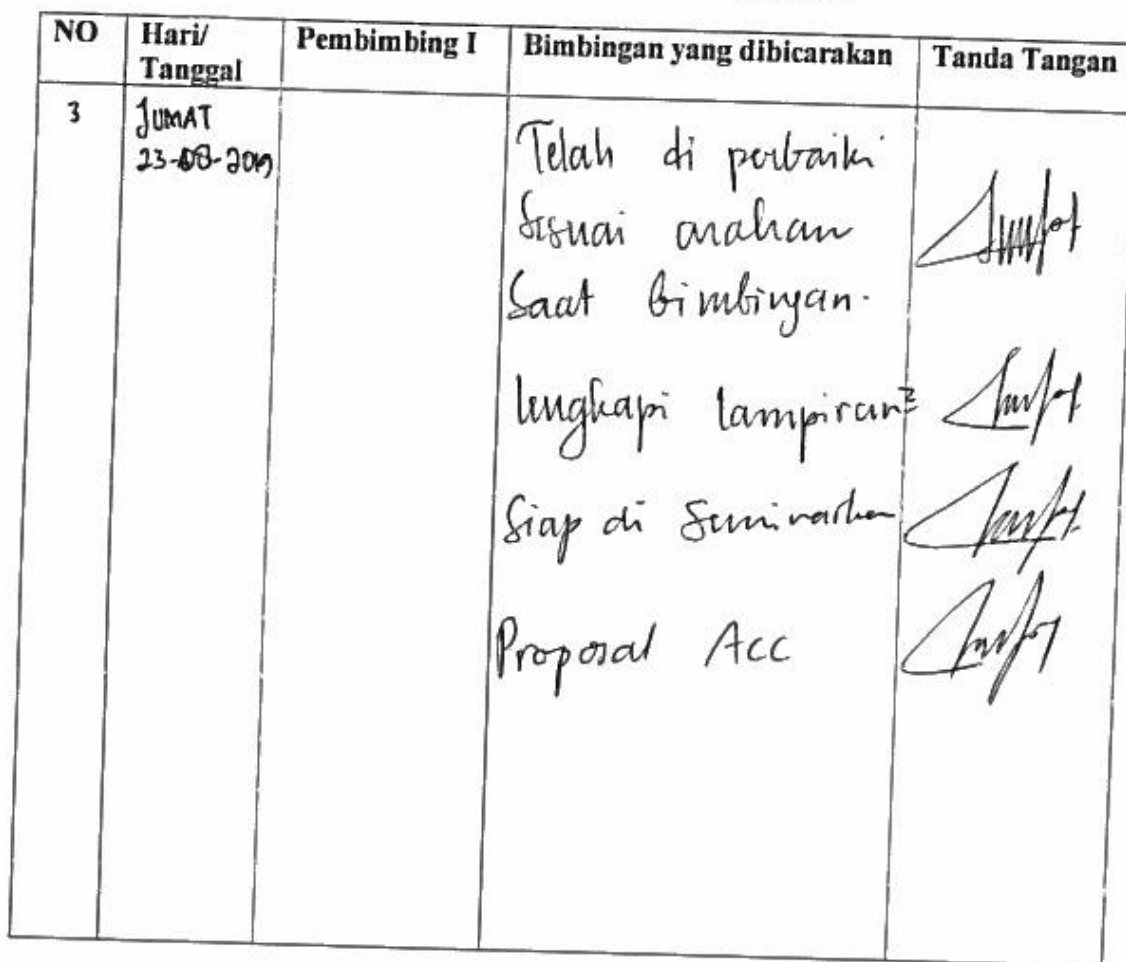 NO Hari/ Pembimbing I Bimbingan yang dibicarakan Tanda Tangan
Tanggal
3 JUMAT Telah di perbaiki
23-08-2019
Sesuai arahan
Saat bimbingan.
lengkapi lampiran²
Siap di Seminarkan
Proposal Acc